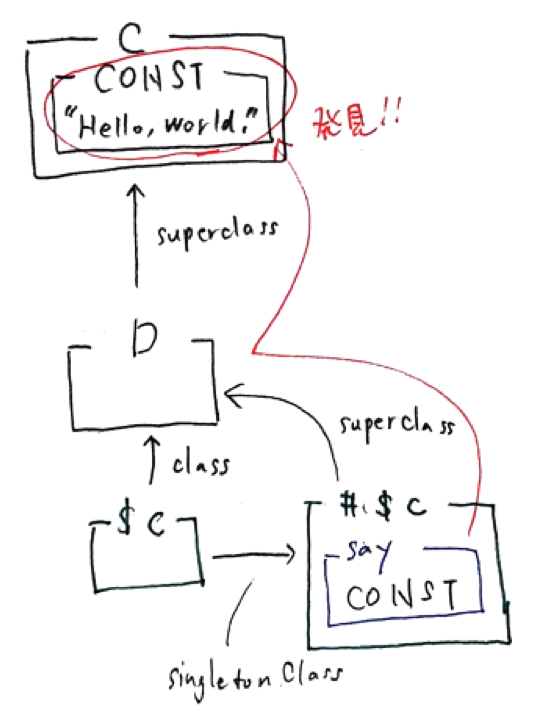 C
CONST
"Hello, world."
発見!!
superclass
D
superclass
class
$c
#$c
say
CONST
singleton Class